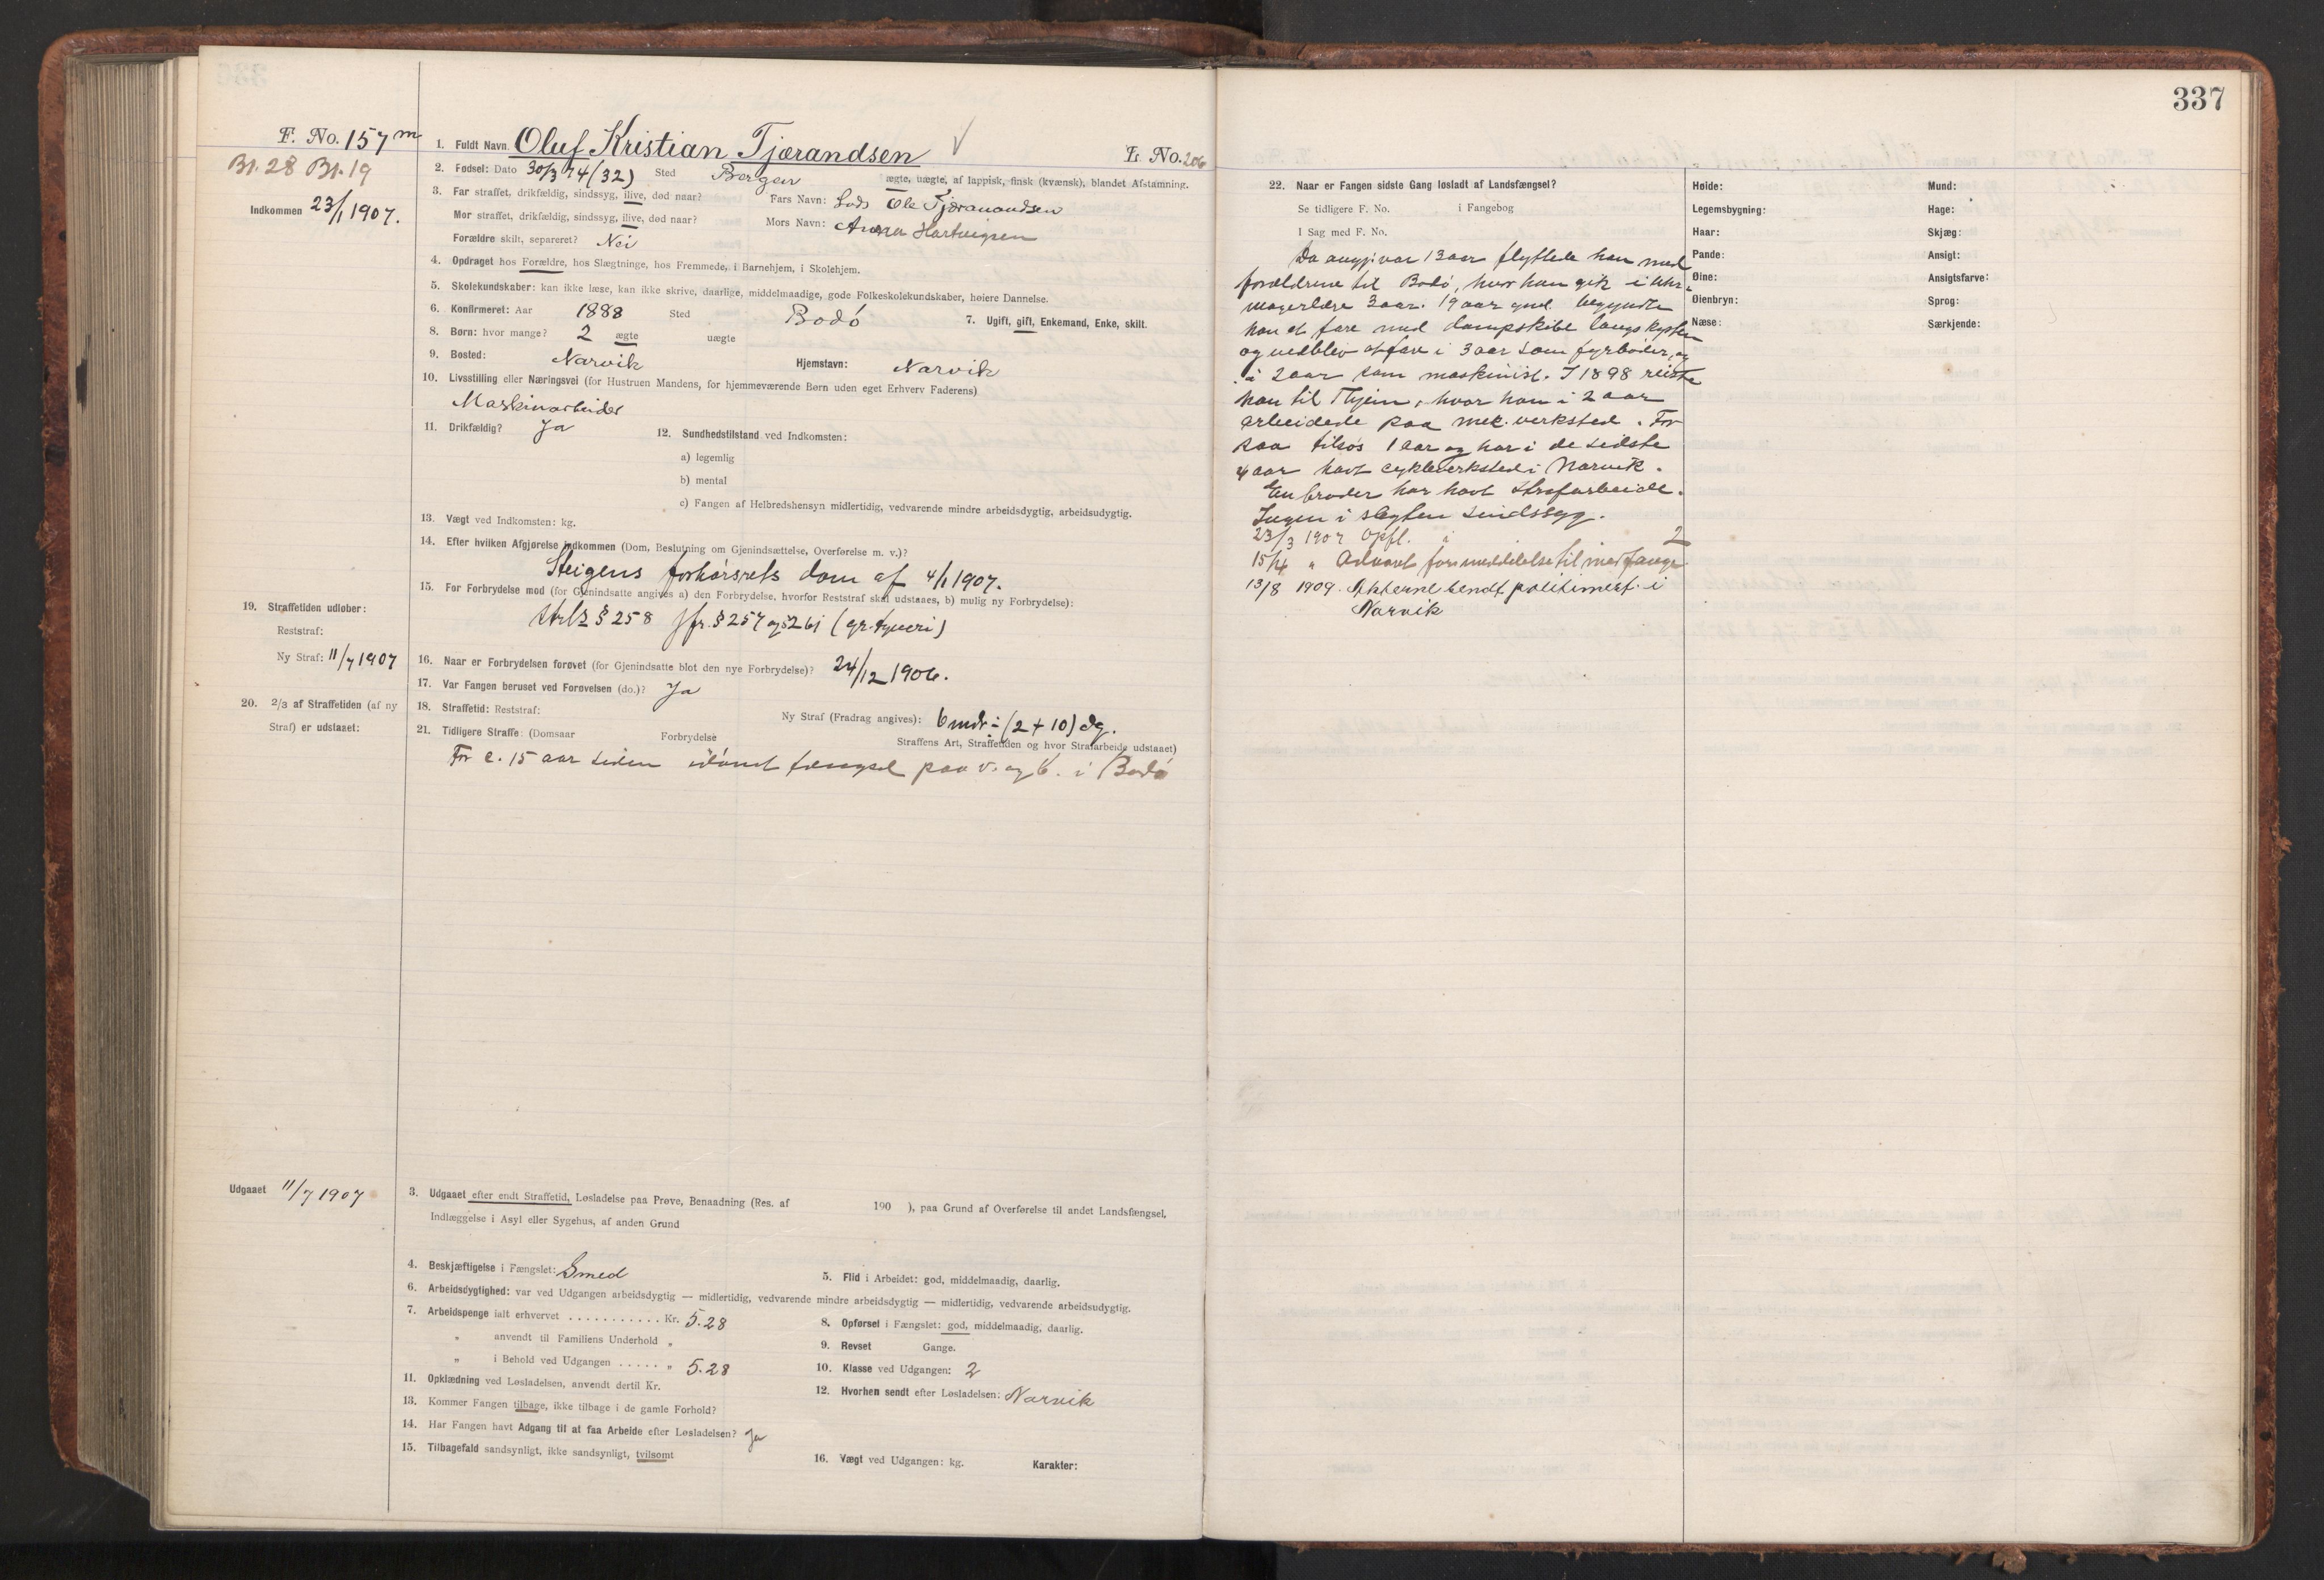 F. No. 157 m
Bl. 28 Bl. 19
Indkommen 23/1 1907.
19. Straffetiden udløber:
Reststraf:
Ny Straf: 11/7 1907
20. 2/3 af Straffetiden (af ny
Straf) er udstaaet:
Udgaaet 11/7 1907
1. Fuldt Navn Oluf Kristian Tjærandsen
L No. 206
2. Fødsel: Dato 30/3 74 (32) Sted Bergen ægte, uægte, af lappisk, finsk (kvænsk), blandet Afstamning.
3. Far straffet, drikfældig, sindssyg, ilive, død naar? Fars Navn: Lods Ole Tjæranandsen
Mor straffet, drikfældig, sindssyg, ilive, død naar? Mors Navn: Anna Hartvigsen
Forældre skilt, separeret? Nei
4. Opdraget hos Forældre, hos Slægtninge, hos Fremmede, i Barnehjem, i Skolehjem.
5. Skolekundskaber: kan ikke læse, kan ikke skrive, daarlige, middelmaadige, gode Folkeskolekundskaber, høiere Dannelse.
6. Konfirmeret: Aar 1888 Sted Bodó 7. Ugift, gift, Enkemand, Enke, skilt.
8. Børn: hvor mange? 2 ægte uægte
9. Bosted: Narvik Hjemstavn: Narvik
10. Livsstilling eller Næringsvei (for Hustruen Mandens, for hjemmeværende Børn uden eget Erhverv Faderens)
Maskinarbeider
11. Drikfældig? Ja 12. Sundhedstilstand ved Indkomsten:
a) legemlig
b) mental
c) Fangen af Helbredshensyn midlertidig, vedvarende mindre arbeidsdygtig, arbeidsudygtig.
13. Vægt ved Indkomsten: kg.
14. Efter hvilken Afgjørelse indkommen (Dom, Beslutning om Gjenindsættelse, Overførelse m. v.)?
Steigens forhörsrets dom af 4/1 1907.
15. For Forbrydelse mod (for Gjenindsatte angives a) den Forbrydelse, hvorfor Reststraf skal udstaaes, b) mulig ny Forbrydelse):
Strl § 258 jfr. § 257 og § 261 (gr. tyveri)
16. Naar er Forbrydelsen forøvet (for Gjenindsatte blot den nye Forbrydelse)? 24/12 1906.
17. Var Fangen beruset ved Forøvelsen (do.)? Ja
18. Straffetid: Reststraf: Ny Straf (Fradrag angives): 6 mdr ÷ (2 + 10) dg.
21. Tidligere Straffe: (Domsaar Forbrydelse Straffens Art, Straffetiden og hvor Strafarbeide udstaaet)
For c. 15 aar siden idömt fængsel paa v. og b. i Bodö
3. Udgaaet efter endt Straffetid, Løsladelse paa Prøve, Benaadning (Res. af 190 ), paa Grund af Overførelse til andet Landsfængsel,
Indlæggelse i Asyl eller Sygehus, af anden Grund
4. Beskjæftigelse i Fængslet: Smed 5. Flid i Arbeidet: god, middelmaadig, daarlig.
6. Arbeidsdygtighed: var ved Udgangen arbeidsdygtig — midlertidig, vedvarende mindre arbeidsdygtig — midlertidig, vedvarende arbeidsudygtig.
7. Arbeidspenge ialt erhvervet ........... Kr. 5.28 8. Opførsel i Fængslet: god, middelmaadig, daarlig.
„ anvendt til Familiens Underhold „ 9. Revset Gange.
„ i Behold ved Udgangen ..... „ 5.28 10. Klasse ved Udgangen: 2
11. Opklædning ved Løsladelsen, anvendt dertil Kr. 12. Hvorhen sendt efter Løsladelsen: Narvik
13. Kommer Fangen tilbage, ikke tilbage i de gamle Forhold?
14. Har Fangen havt Adgang til at faa Arbeide efter Løsladelsen? Ja
15. Tilbagefald sandsynligt, ikke sandsynligt, tvilsomt 16. Vægt ved Udgangen: kg. Karakter:
337
22. Naar er Fangen sidste Gang løsladt af Landsfængsel?
Se tidligere F. No. i Fangebog
I Sag med F. No.
Da angj. var 13 aar flyttede han med
forældrene til Bodö, hvor han gik i uhr-
magerlære 3 aar. 19 aar gml. begyndte
han at fare med dampskibe langs kysten
og vedblev at fare i 3 aar som fyrböder, og
i 2 aar som maskinist. I 1898 reiste
han til Thjem, hvor han i 2 aar
arbeidede paa mek. verksted. For
saa tilsös 1 aar og har i de sidste
4 aar havt cykleverksted i Narvik.
En broder har havt strafarbeide.
Ingen i slegten sindssyg.
23/3 1907 Opfl. i 2
15/4 „ Advaret for meddelelse til medfange
13/8 1909. Akterne sendt politimest. i
Narvik
Høide:
Legemsbygning:
Haar:
Pande:
Øine:
Øienbryn:
Næse:
Mund:
Hage:
Skjæg:
Ansigt:
Ansigtsfarve:
Sprog:
Særkjende: